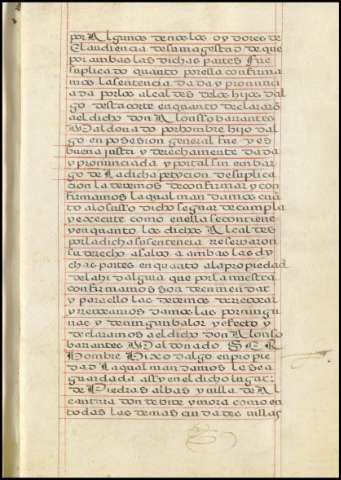 por Algunos denoslos oydores de
la audiencia desumagestad de que
por ambas las dichas partes fue
suplicado quanto porella confirma
mos lasentencia dada y pronuncia
ada porlos alcaldes delos hijos dal
go desta corte en quanto declararon
aeldicho don Alonsso barrantes
maldonado porhombre hijo dal
go en posesion general fue y es
buena justa y derechamente dada
y pronunciada y portal sin embar
go de la dicha peticion de suplica
cion la devemos de confirmar y con
firmamos la qual mandamos quan
to alosusso dicho se guarde cumpla
y execute como enella secontiene
y en quanto los dichos Alcaldes
porla dicha susentencia reservaron
su derecho asalvo a ambas las dy
chas partes en quanto alapropiedad
dela hidalguia que porla nuestra
confirmamos
y para ello la devemos de revocar
y revocamos damosla por ningu
na y deningun balor y efecto y
declaramos aeldicho don Alonso
barrantes Maldonado SER
Hombre Hixodalgo en propie
dad Laqual mandamos le sea
guardada assy en el dicho lugar
de Piedras albas y villa de Al
cantara donde bive y mora como en
todas las demas ciudades villas